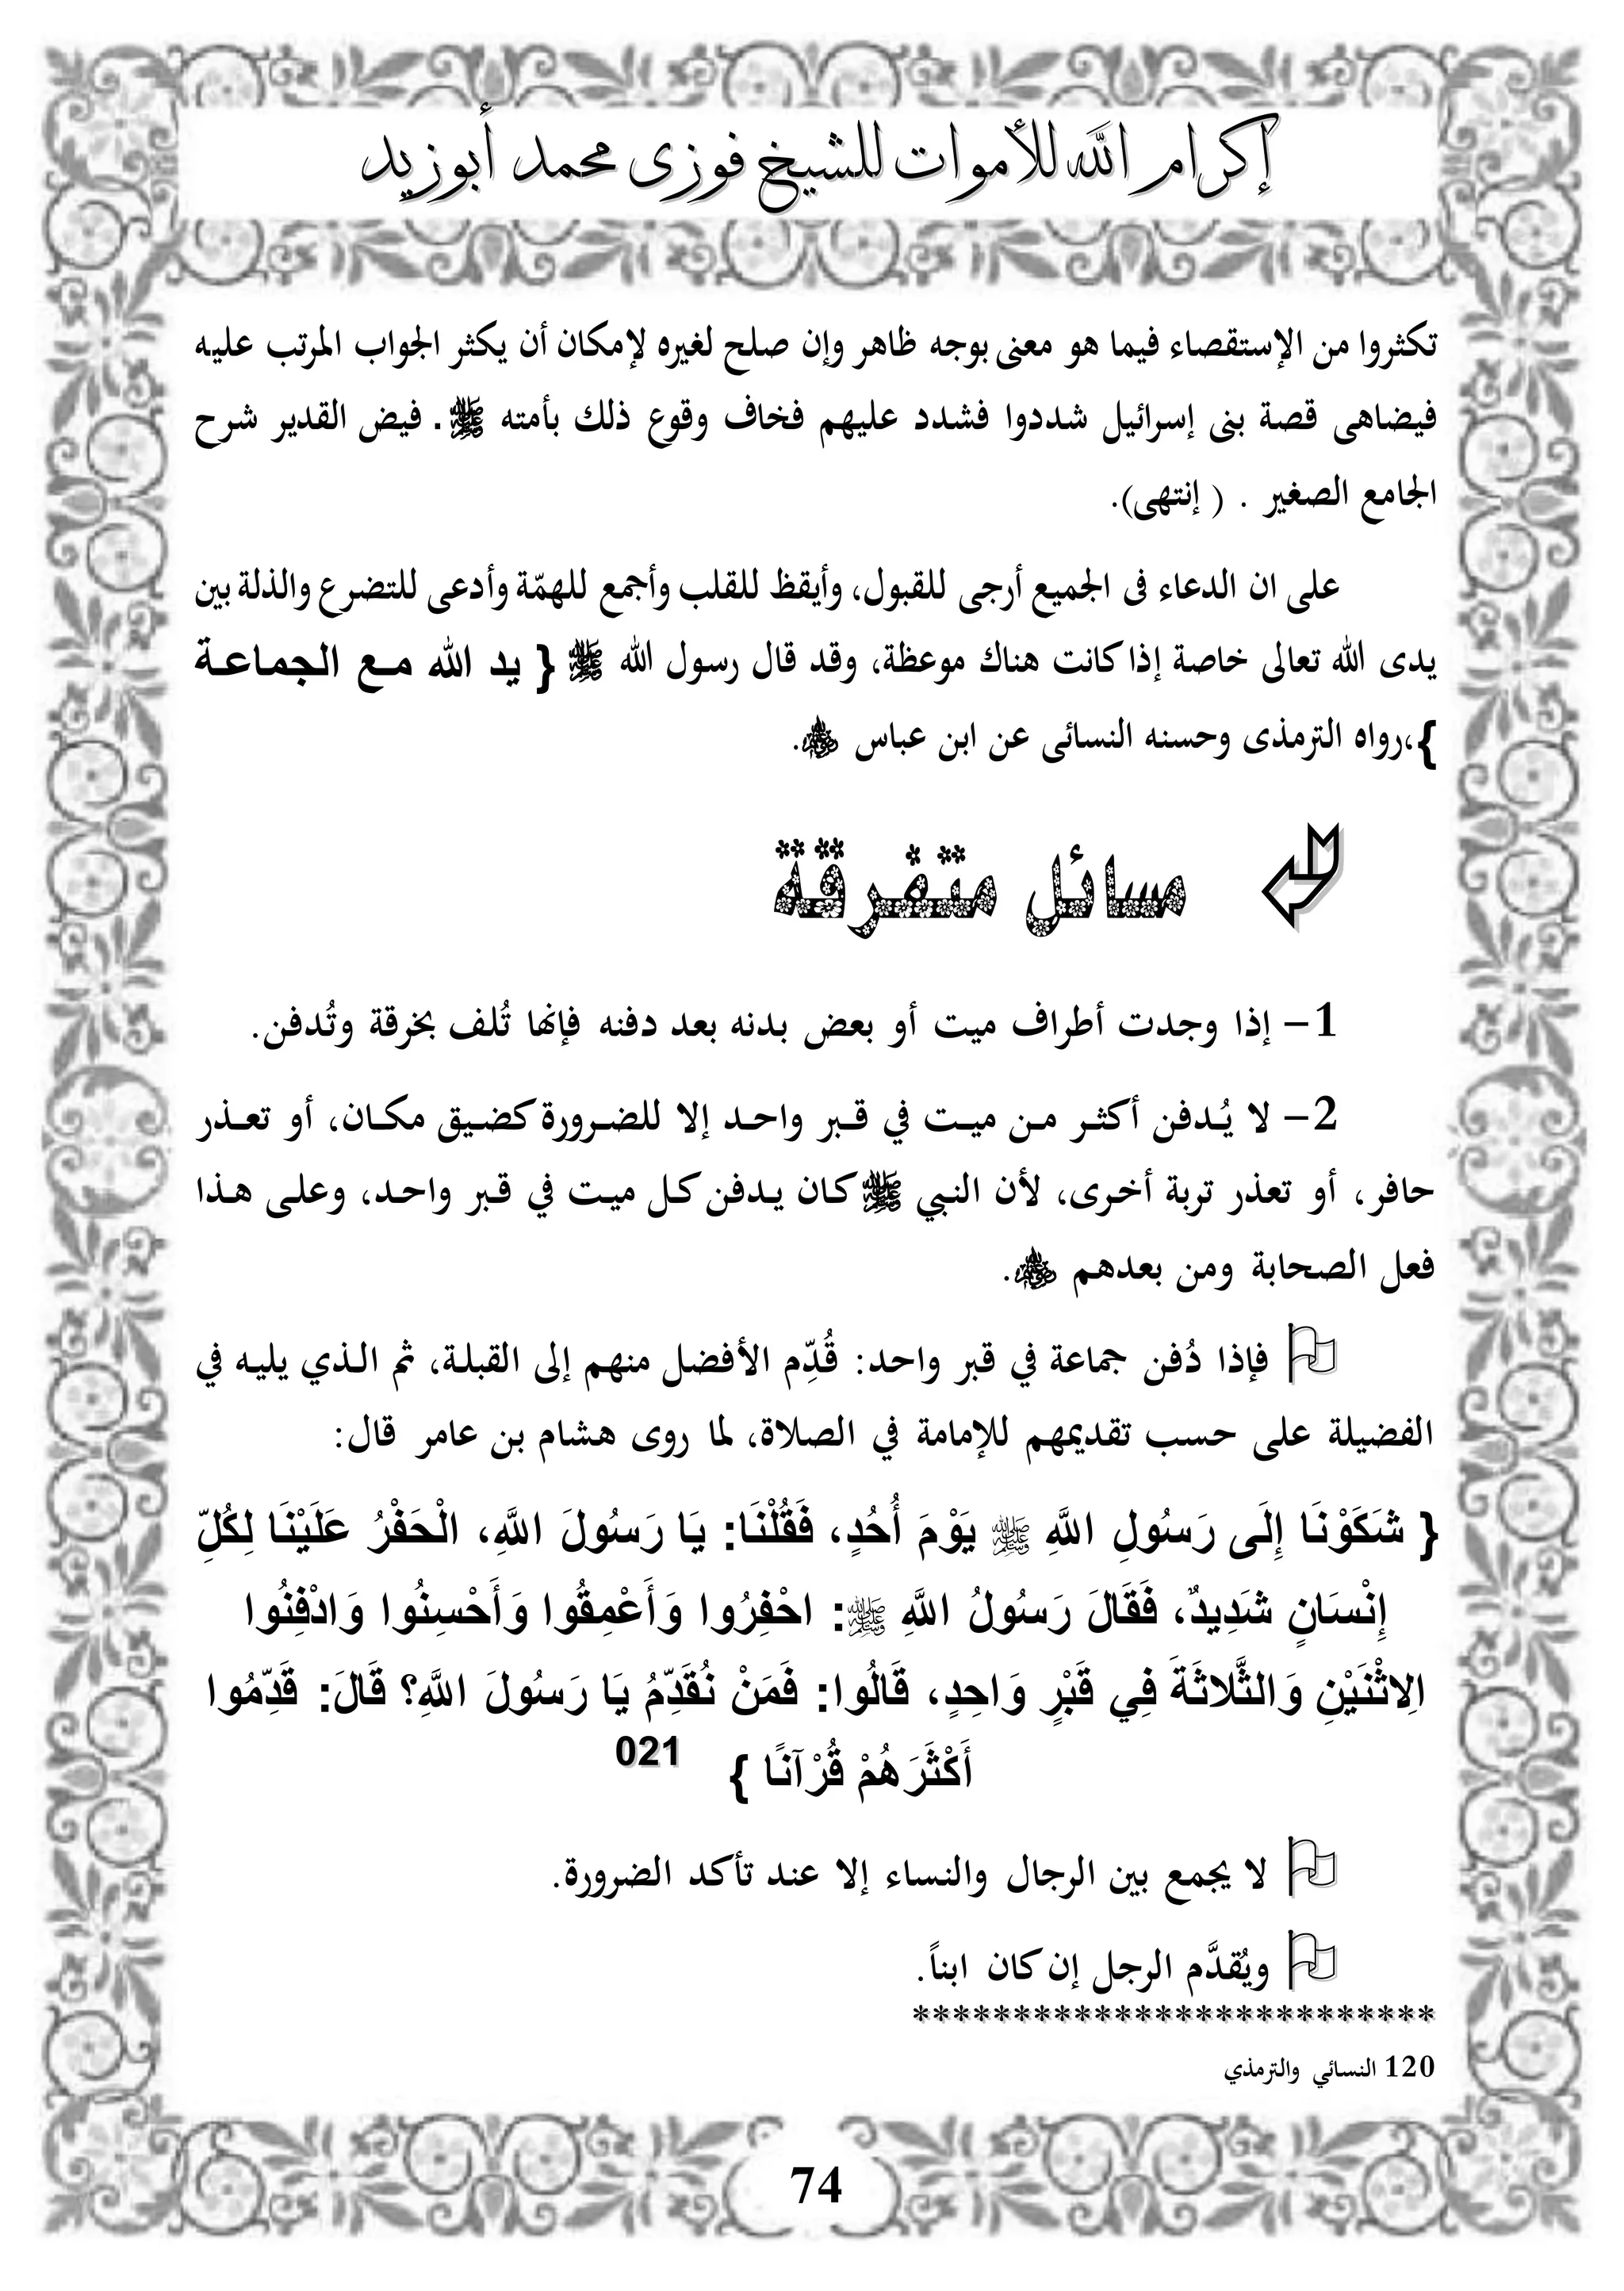 إكرام الله للأموات للشيخ فوزى محمد أبوزيد
تكثروا من الإستقصاء فيما هو معنى بوجه ظاهر وإن صلح لغيره لإمكان أن يكثر الجواب المرتب عليه
فيضاهى قصة بنى إسرائيل شددوا فشدد عليهم فخاف وقوع ذلك بأمته ﷺ . فيض القدير شرح
الجامع الصغير . ( إنتهى).
على ان الدعاء فى الجميع أرجى للقبول، وأيقظ للقلب وأجمع للهمّة وأدعى للتضرع والذلة بين
يدى الله تعالى خاصة إذا كانت هناك موعظة، وقد قال رسول الله ﷺ { يد الله مع الجماعة
}،رواه الترمذى وحسنه النسائى عن ابن عباس .
مسائل متفرقة
1- إذا وجدت أطراف ميت أو بعض بدنه بعد دفنه فإنها تُلف بخرقة وتُدفن.
2- لا يُدفن أكثر من ميت في قبر واحد إلا للضرورة كضيق مكان، أو تعذر
حافر، أو تعذر تربة أخرى، لأن النبي ﷺ كان يدفن كل ميت في قبر واحد، وعلى هذا
فعل الصحابة ومن بعدهم .
فإذا دُفن جماعة في قبر واحد: قُدِّم الأفضل منهم إلى القبلة، ثم الذي يليه في
الفضيلة على حسب تقديمهم للإمامة في الصلاة، لما روى هشام بن عامر قال:
{ شَكَوْنَا إِلَى رَسُولِ اللَّهِ ﷺ يَوْمَ أُحُدٍ، فَقُلْنَا: يَا رَسُولَ اللَّهِ، الْحَفْرُ عَلَيْنَا لِكُلِّ
إِنْسَانٍ شَدِيدٌ، فَقَالَ رَسُولُ اللَّهِ ﷺ: احْفِرُوا وَأَعْمِقُوا وَأَحْسِنُوا وَادْفِنُوا
اِلاثْنَيْنِ وَالثَّلاثَةَ فِي قَبْرٍ وَاحِدٍ، قَالُوا: فَمَنْ نُقَدِّمُ يَا رَسُولَ اللَّهِ؟ قَالَ: قَدِّمُوا
أَكْثَرَهُمْ قُرْآنًا } 021
لا يجمع بين الرجال والنساء إلا عند تأكد الضرورة.
ويُقدَّم الرجل إن كان ابناً.
**************************
120 النسائي والترمذي
74